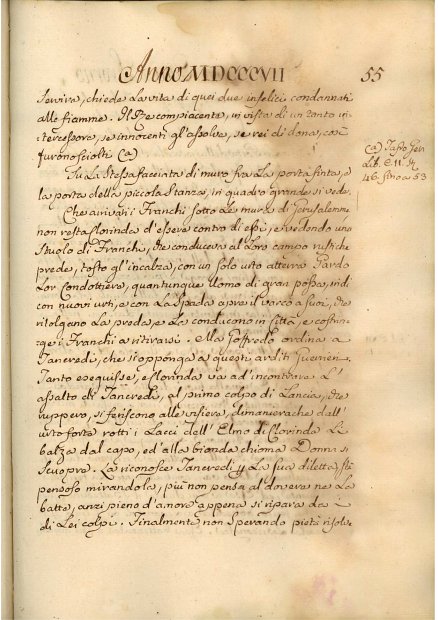 Anno MDCCCVII
55
servira, chiede la vita di quei due infelici condannati
alle fiamme. Il Re compiacente, in vista di un tanto in-
tercessore, se innocenti gl'assolve, se rei di dona, così
furono sciolti (a)
(a) Tasso Ger.
Lib. C. II.
46. fino a 53
Su la stessa facciata di muro fra la porta finta, e
la porta della piccola stanza, in quadro grande si vede.
Che arrivati i Franchi sotto le mura di Gerusalemme
non resta Clorinda d'essere contro di essi, e vedendo uno
stuolo di Franchi, che conduceva al loro campo rustiche
prede, tosto gl'incalza, con un solo urto atterra Gardo
lor Condottiero, quantunque Uomo di gran possa, indi
con nuovi urti, e con la spada apre il varco a suoi, che
ritolgono la preda, e la conducono in Città, e costrin-
ge i Franchi a ritirarsi. Alla Goffredo ordina a
Tancredi, che si opponga a questi arditi Guerrieri.
Tanto eseguisce, e Clorinda va ad incontrare l'
assalto di Tancredi, al primo colpo di Lancia, che
ruppero, si feriscono alle visiere, dimanierache dall'
urto forte rotti i Lacci dell'Elmo di Clorinda li
balza dal capo, ed alla bionda chioma Donna si
scuopre. La riconosce Tancredi p la sua diletta,
mirandola, più non pensa al dovere ne la
batte, anzi pieno d'amore appena si ripara da i
di Lei colpi. Finalmente non sperando pietà risolve